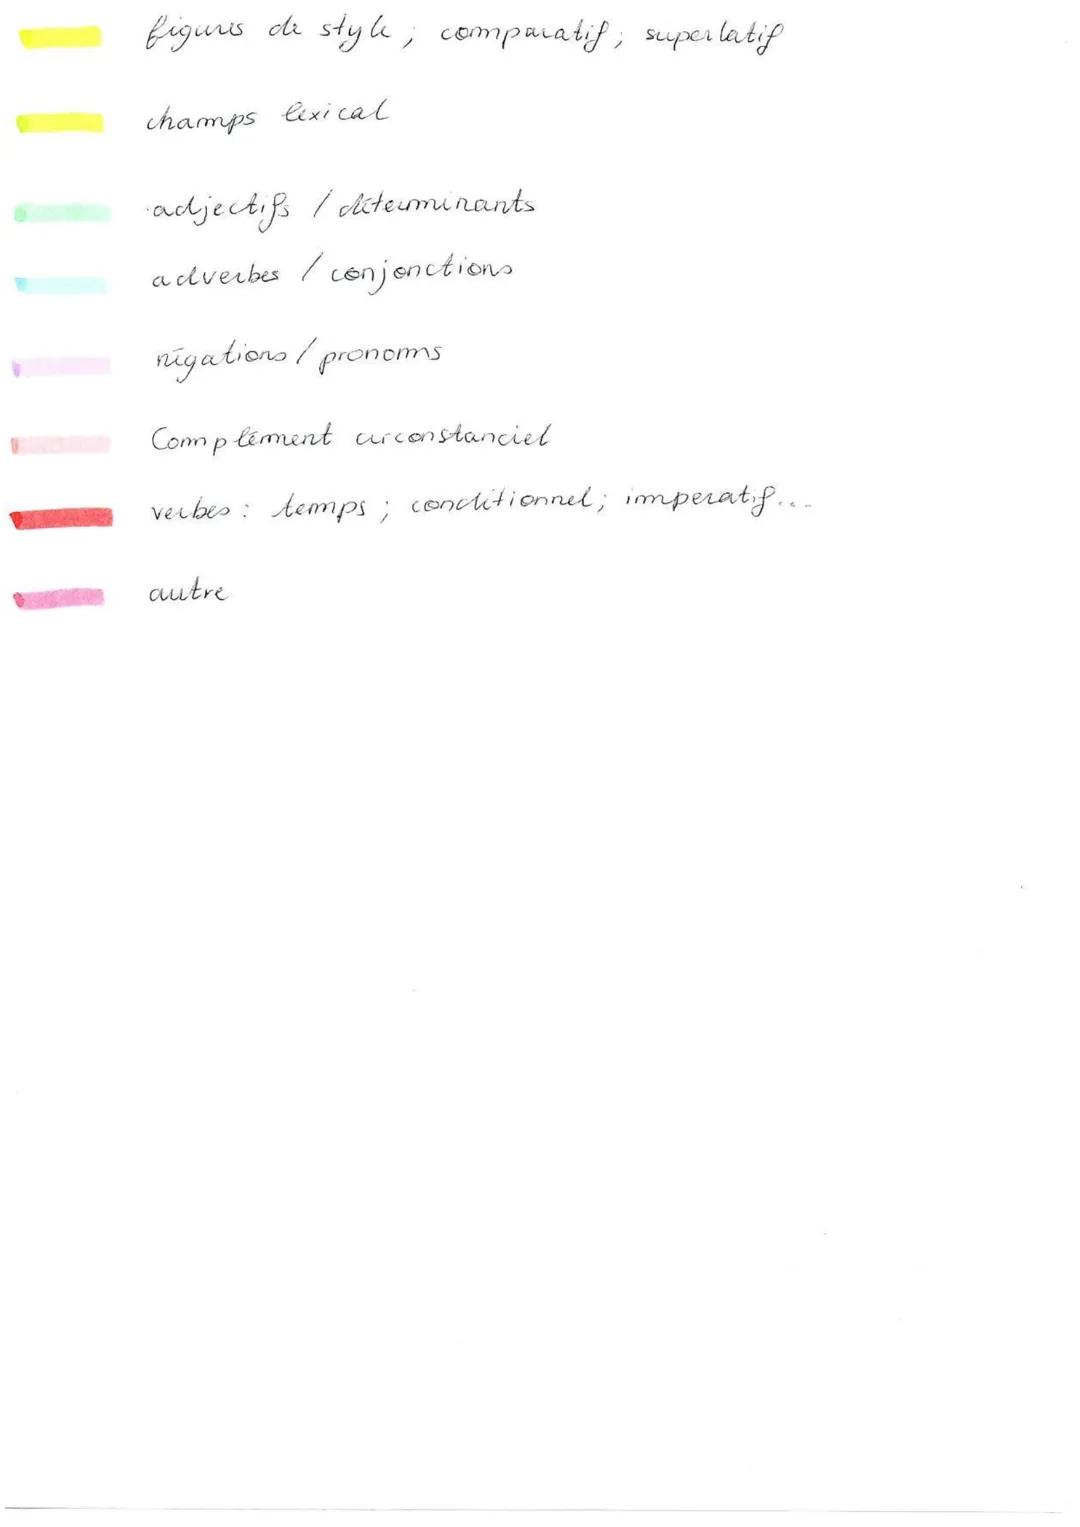 figures de style ; comparatif ; superlatif
champs lexical
adjectifs / déterminants
adverbes / conjonctions
négations / pronoms
Complément circonstanciel
verbes : temps ; conditionnel ; imperatif...
autre